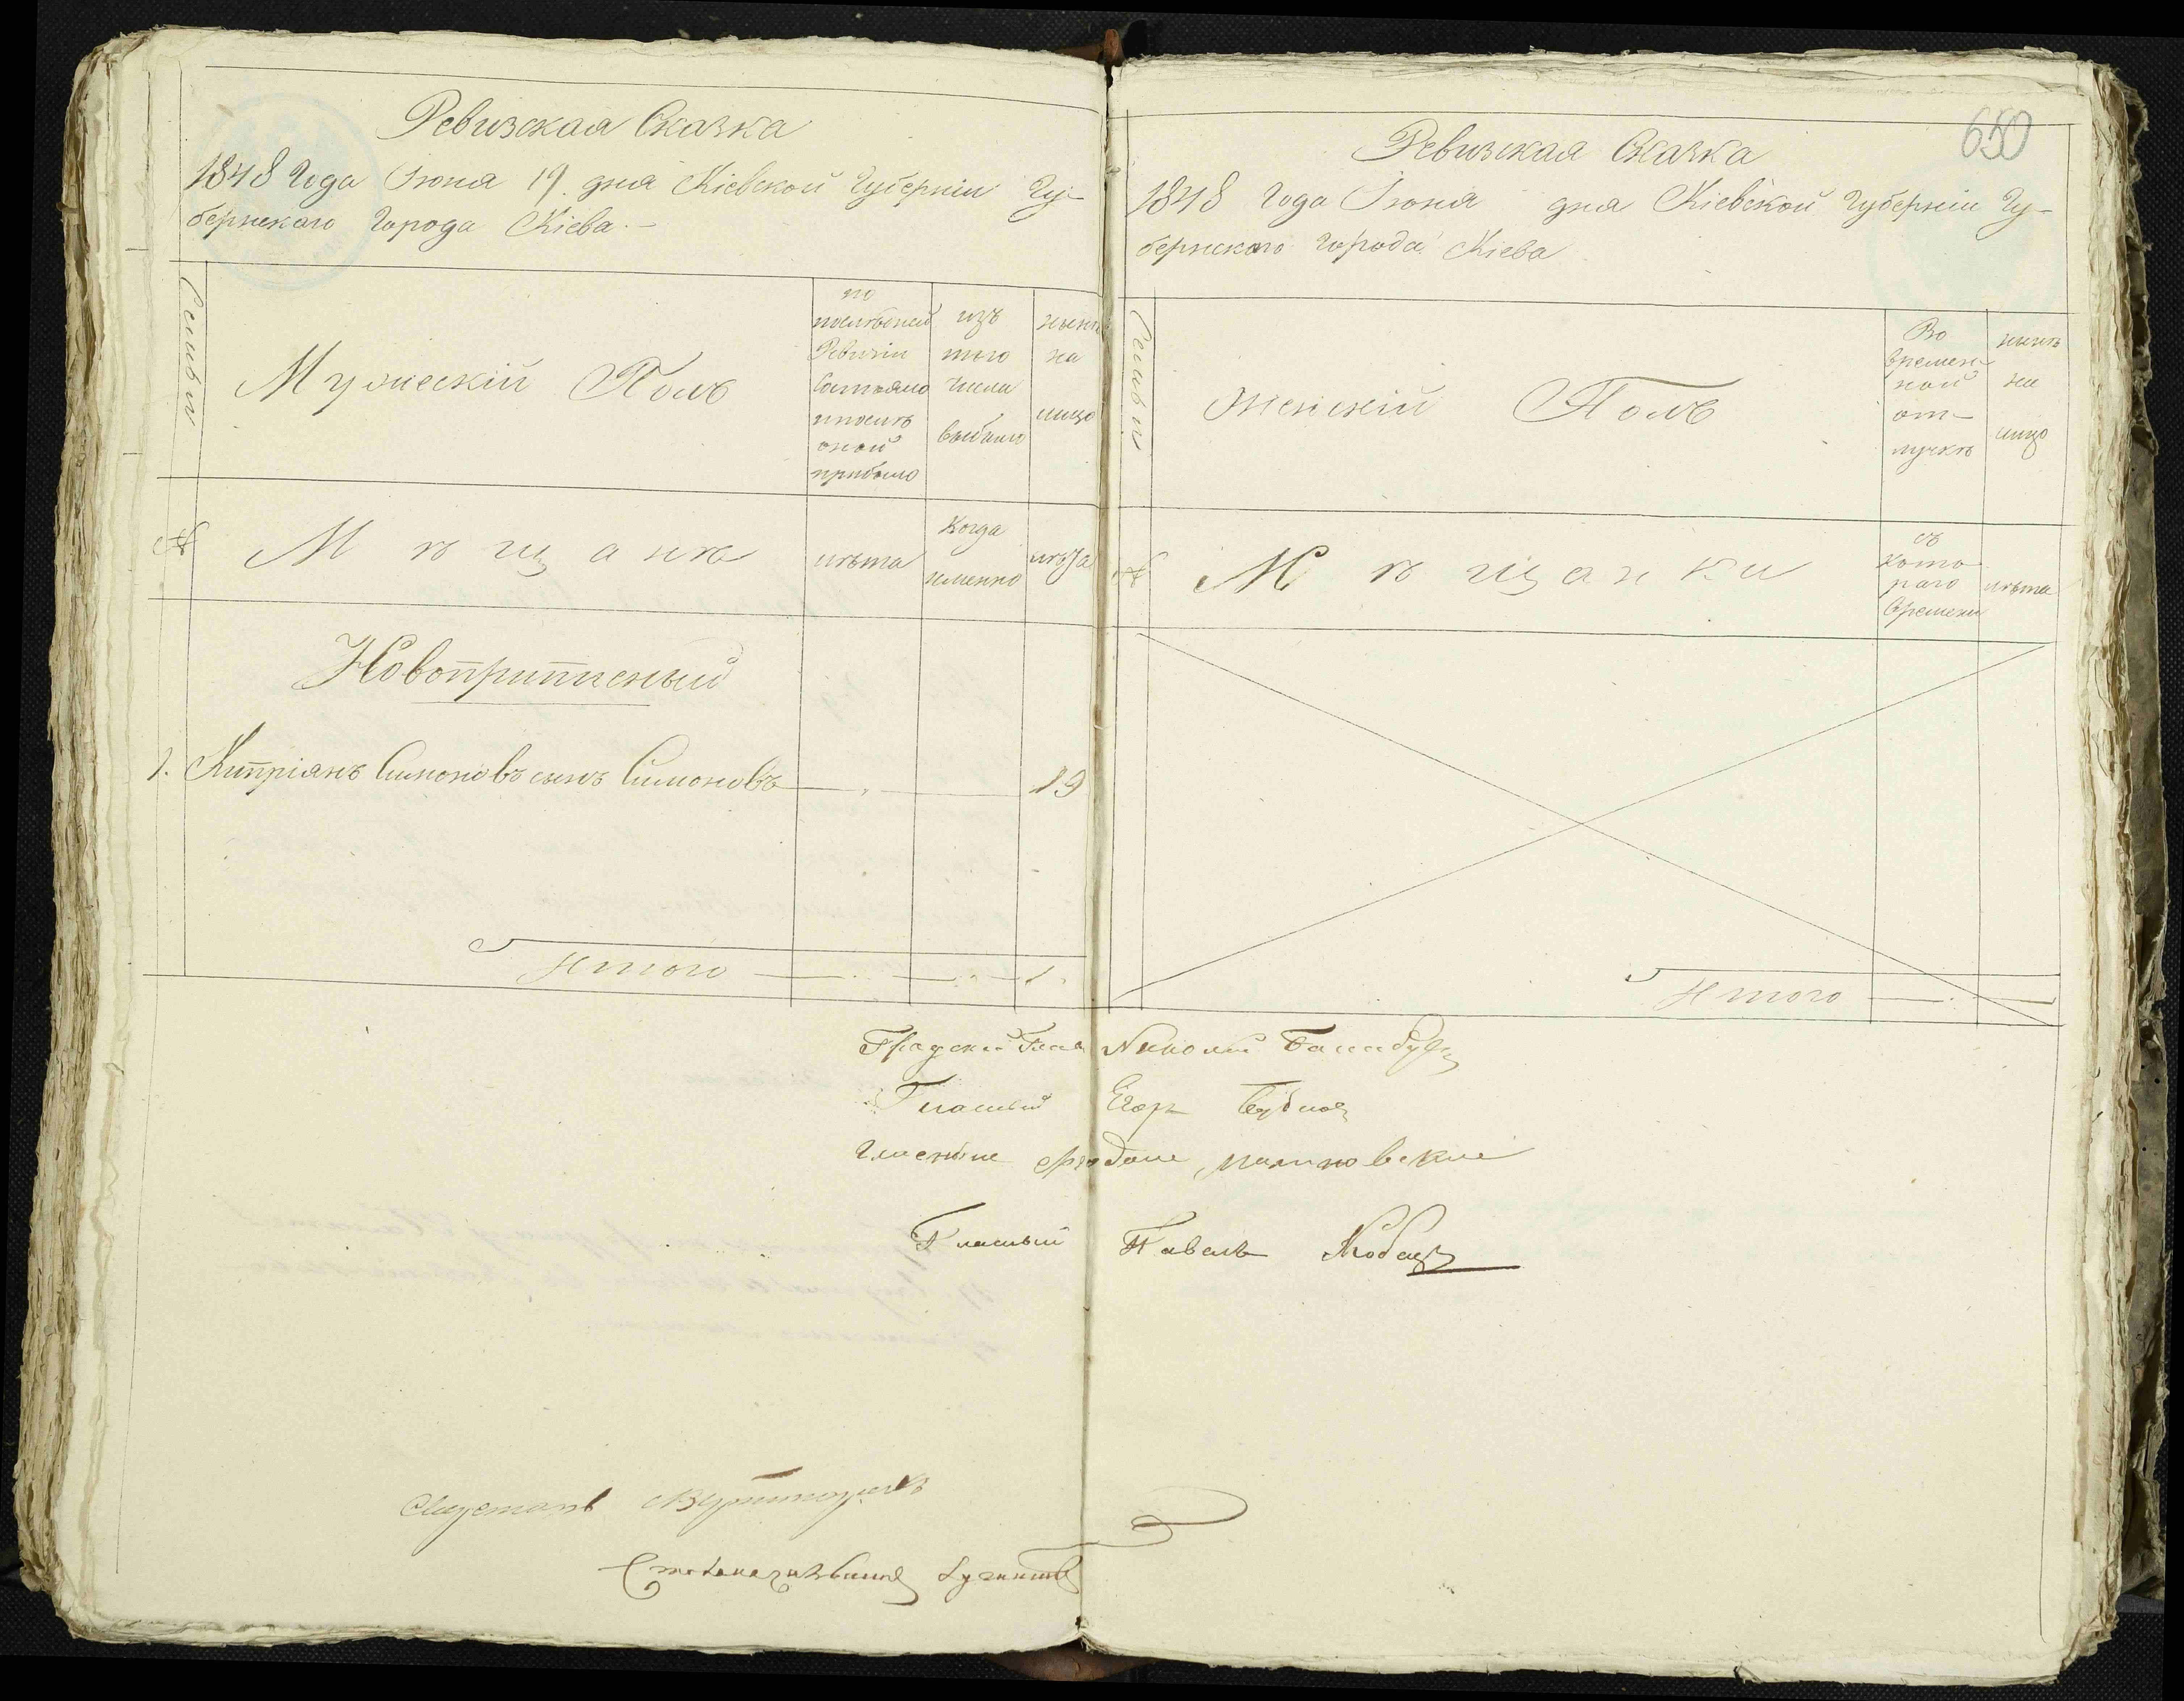 Ревизская Сказка
1848 Года Іюня 19. дня Кіевской Губерніи Гу-
бернскаго Города Кіева.
Семьи
Мужескій Полъ
по
последней
Ревизіи
Состояло
и после
оной
прибыло
изъ
того
числа
выбыло
ныне
на
лицо
№
Мѣщане
лѣта
Когда
именно
лѣта
Новоприписный
1. Кипріянъ Симоновъ сынъ Симоновъ 19
Итого 1.
650
Ревизская Сказка
1848 Года Іюня дня Кіевской Губерніи Гу-
бернскаго Города Кіева
Семьи
Женскій Полъ
Во
времен-
ной
от-
лучкѣ
нынѣ
на
лицо
№
Мѣщанки
съ
кото-
раго
времени
лѣта
Итого
Градскій Глава Николай
Гласный Егор
Гласныи
Гласный Павелъ